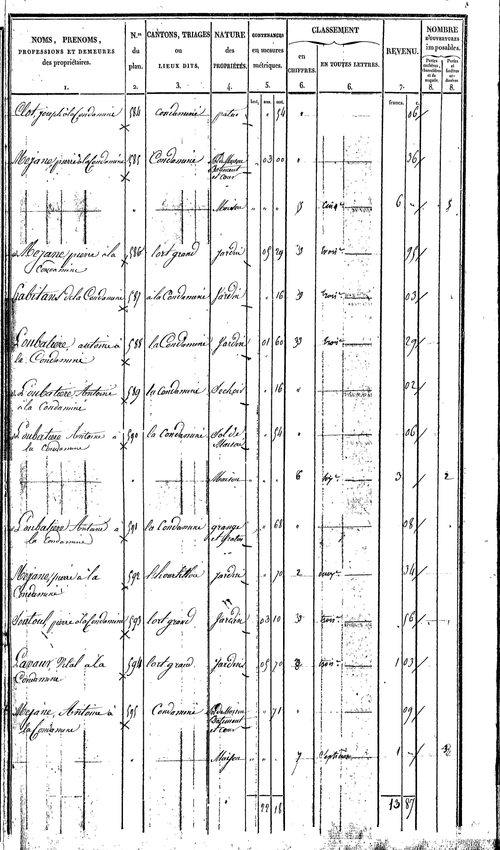 NOMS, PRENOMS,
PROFESSIONS ET DEMEURES
des propriétaires.
1.
N.os
du
plan.
2.
CANTONS, TRIAGES
ou
LIEUX DITS,
3.
NATURE
des
PROPRIÉTÉS.
4.
CONTENANCES
en mesures
métriques.
5.
CLASSEMENT
en
CHIFFRES.
6.
EN TOUTES LETTRES.
6.
REVENU.
7.
NOMBRE
D'OUVERTURES
imposables.
8. 8.
francs. c.
Clot, joseph à la Condamine 584 Condamine patus " " 54 " 06
Mejane pierre à la Condamine 585 Condamine Sol de Maison " 03 00 " 36
Batiment
et cour
" Maison " " " 5 cinq.e 6 - 5
Mejane, pierre à la 586 l'ort grand Jardin " 05 29 3 trois.e 95
Condamine
habitans de la Condamine 587 à la Condamine Jardin " " 16 3 trois.e 03
Loubatiere antoine à 588 la Condamine Jardin " 01 60 3 trois.e 29
la Condamine
Loubatiere, Antoine 589 la Condamine Sechoir " " 16 " 02
à la Condamine
Loubatiere Antoine à 590 la Condamine Sol de " " 54 " 06
la Condamine Maison
" Maison " " " 6 six.e 3 2
Loubatiere Antoine à 591 la Condamine grange " " 68 " 08
la Condamine et patus
Mejane, pierre à la 592 Jardin " " 70 2 deux.e 34
Condamine
pierre à la Condamine 593 l'ort grand Jardin " 03 10 3 trois.e 56
Vidal à la 594 l'ort grand Jardin " 05 70 3 trois.e 1 03
Condamine
Mejane, Antoine à 595 Condamine Sol de Maison " " 71 " 09
la Condamine Batiment
et cour
Maison " " " 7 septième 1 -
22 18 13 87